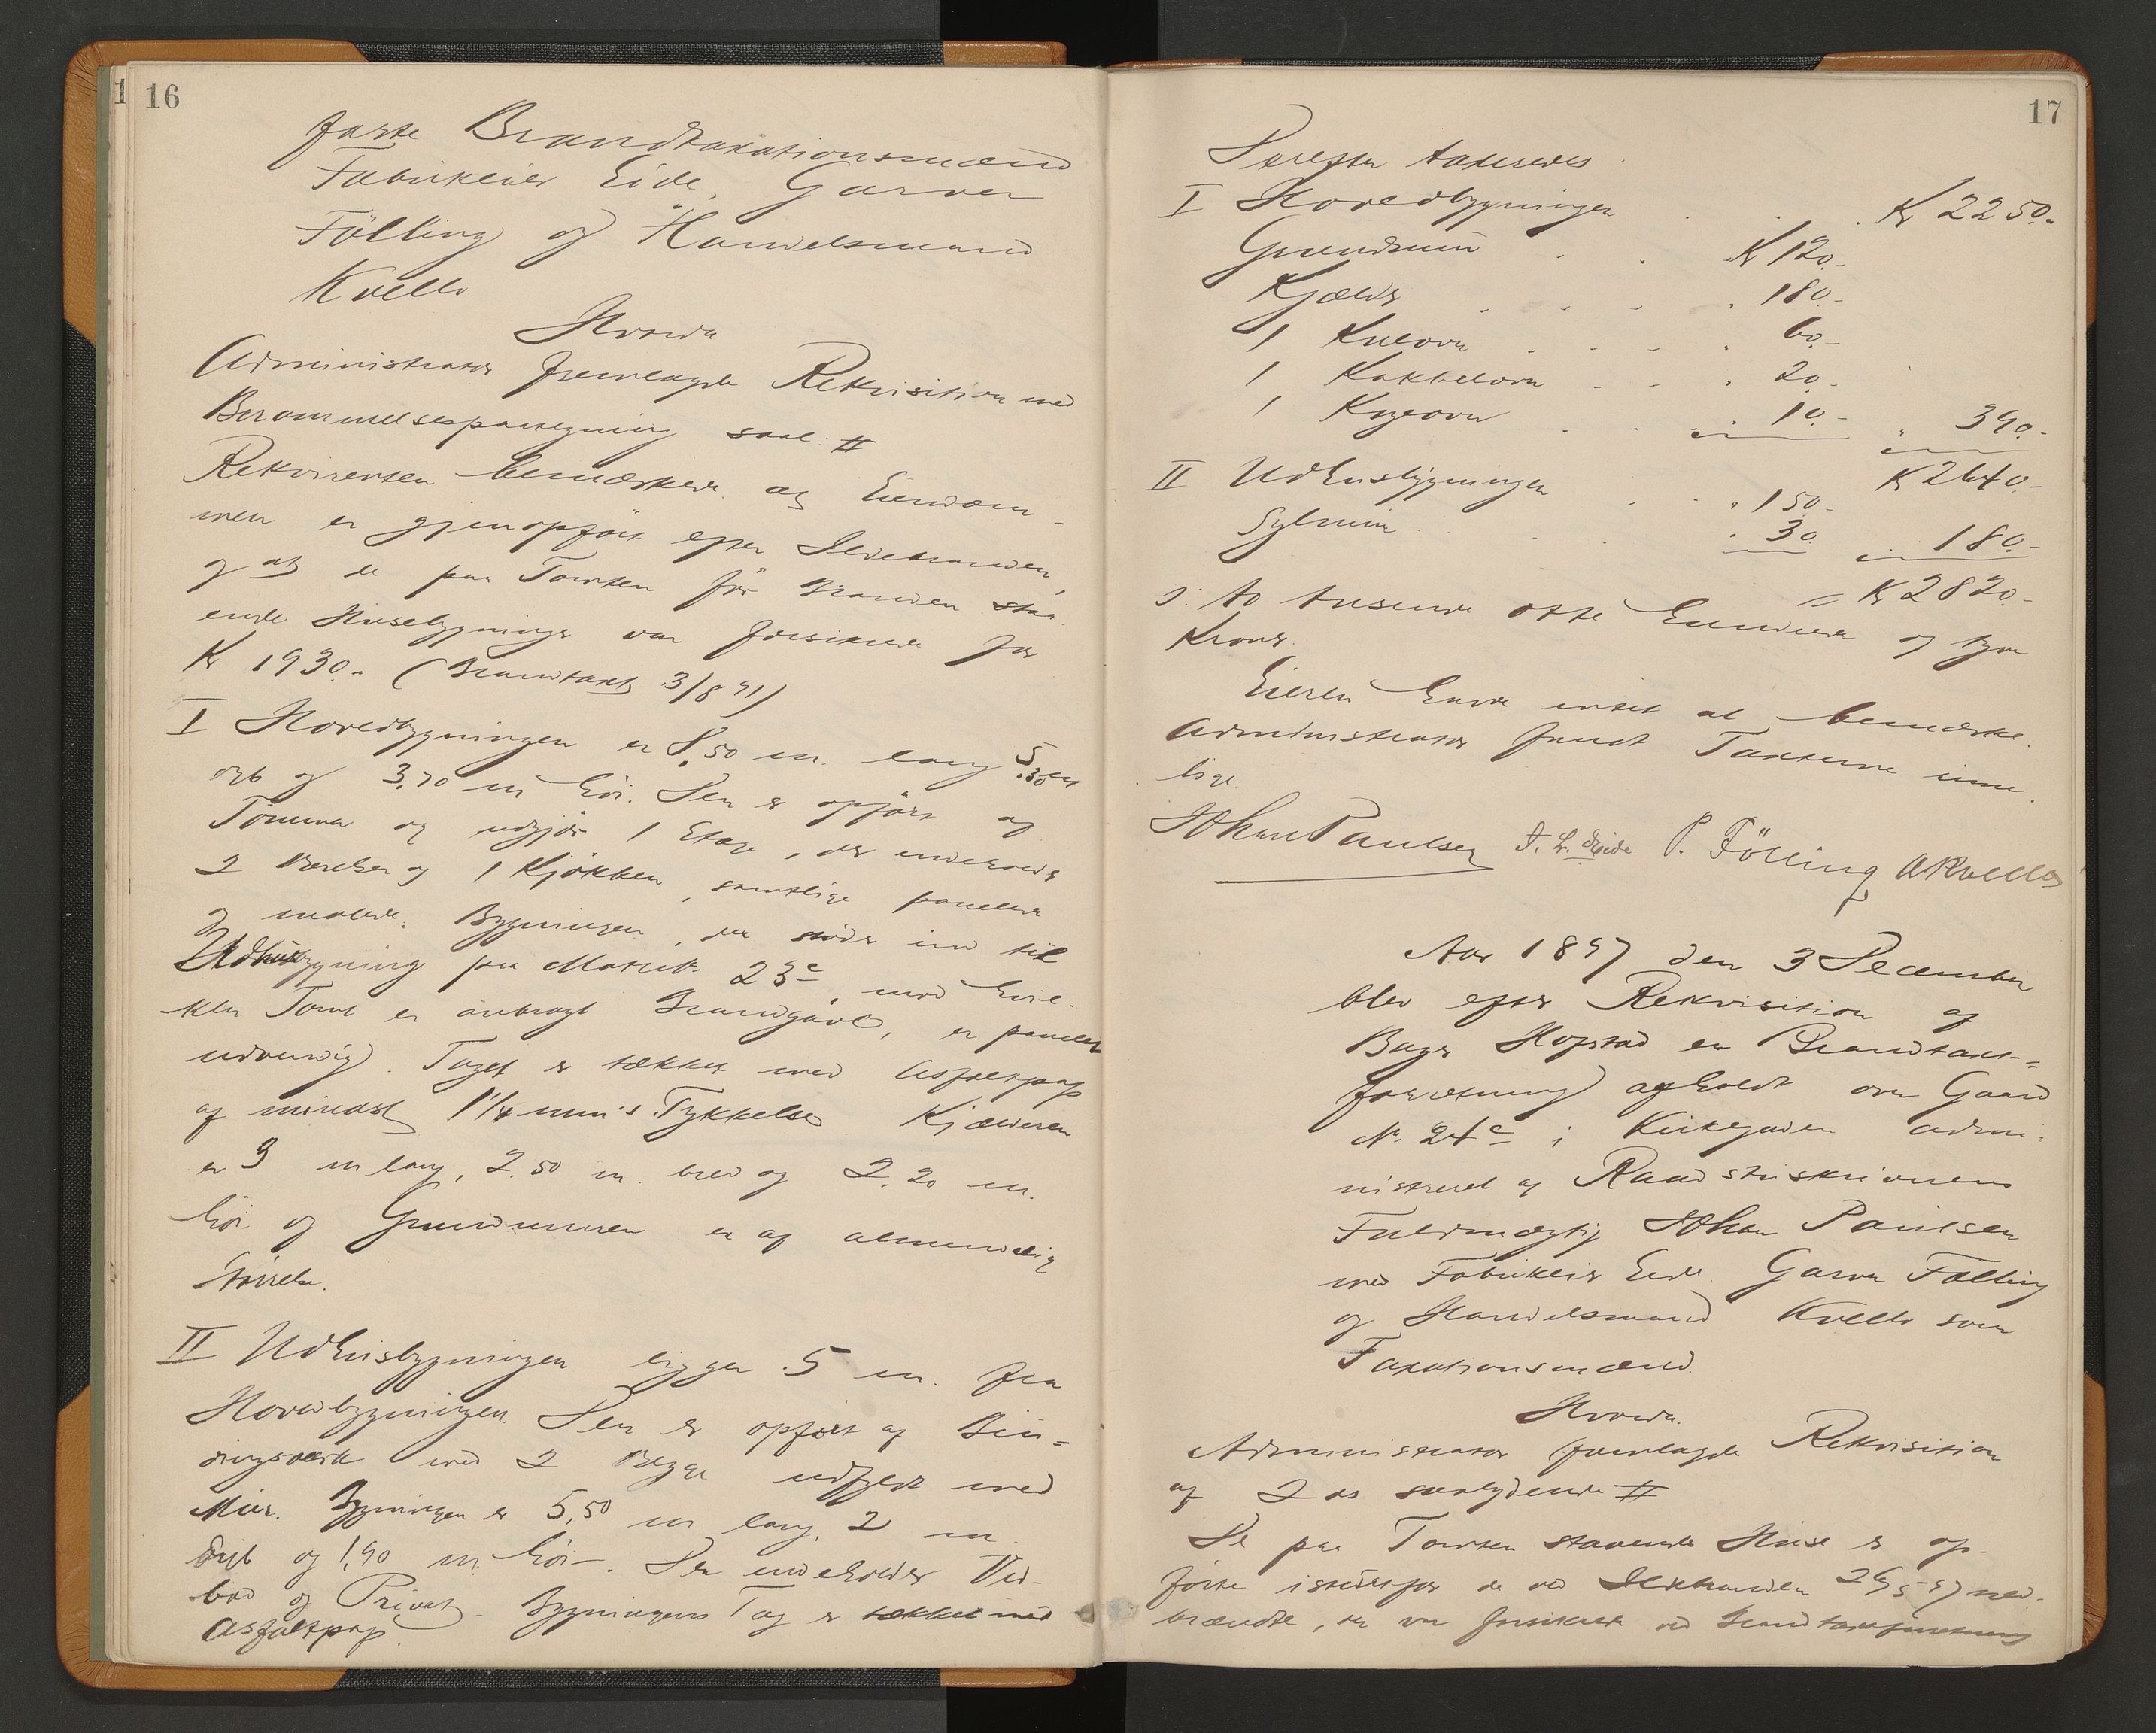 16
faste Brandtaxationsmænd
Fabrikeier Eide, Garver
Fölling og Handelsmand
Kvello
Hvorda
Administrator fremlagde Rekvisition med
Berammelsespaategning saal: #
Rekvirenten bemærkede at Eiendom-
men er gjenopfört efter Ildebranden,
og at de paa Tomten för Branden staa-
ende Husebygninger var forsikret for
Kr 1930.- (Brandtaxt 3/8 91)
I Hovedbygningen er 8,50 m. lang 5,30 m
dyb og 3,70 m höi. Den er opfört af
Tömmer og udgjör 1 Etage, der indeholder
2 Værelser og 1 Kjökken, samtlige panelede
og malede. Bygningen, der stöder ind til
Udhusbygning paa Matrik. 23c, mod hvil-
ken Tomt er anbragt Brandgavl, er panelet
udvendig. Taget er tækket med Asfaltpap
af mindst 1 1/4 mm's Tykkelse. Kjælderen
er 3 m lang, 2,50 m. bred og 2,20 m.
höi og Grundmuren er af almindelig
Störrelse.
II Udhusbygningen ligger 5 m. fra
Hovedbygningen. Den er opfört af Bin=
dingsværk med 2 Vægge udfyldt med
Mur. Bygningen er 5,50 m lang, 2 m.
dyb og 1,90 m höi. Den indeholder Ved-
bod og Privet. Bygningens Tag er tækket med
Asfaltpap.
17
Derefter taxeredes
I Hovedbygningen Kr 2250.-
Grundmur Kr 120.-
Kjælder 180.-
1 Kulovn 60.-
1 Kakkelovn 20.-
1 Kogeovn 10.- " 390.-
Kr 2640.-
II Udhusbygningen " 150.-
Gylmur " 30. " 180.-
= Kr 2820.-
ɔ: to tusende otte hundrede og tyve
Kroner.
Eieren havde intet at bemærke.
Administrator fandt Taxterne rime-
lige.
Johan Paulsen J. L. Eide P. Fölling A Kvello
Aar 1897 den 3 December
blev efter Rekvisition af
Bager Hopstad en Brandtaxt=
forretning afholdt over Gaard
No. 24c i Kirkegaden admi-
nistreret af Raadstuskriverens
Fuldmægtig Johan Paulsen
med Fabrikeier Eide, Garver Fölling
og Handelsmand Kvello som
Taxationsmænd.
Hvorda.
Administrator fremlagde Rekvisition
af 2 ds saalydende #
De paa Tomten staaende Huse er op-
förte istedetfor de ved Ildebranden 26/5 97 ned-
brændte, der var forsikret ved Brandtaxtforretning